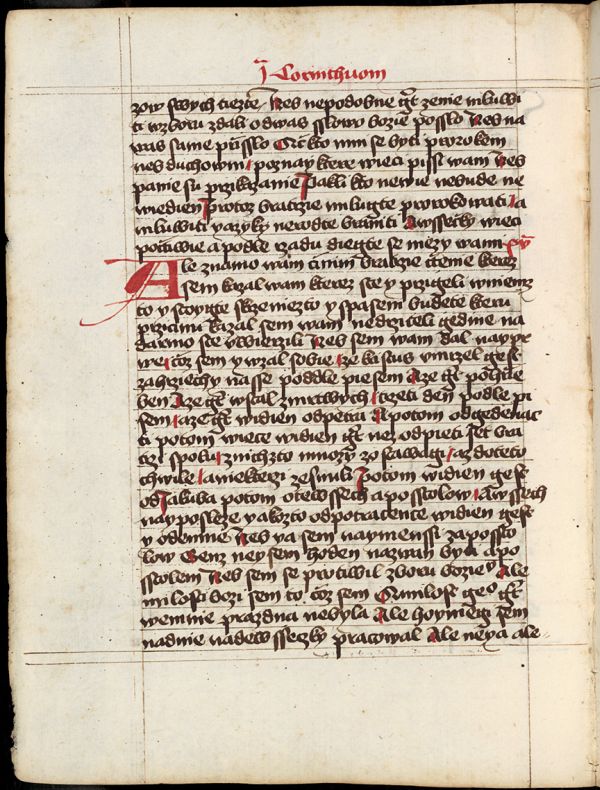 J Corinthuom
zow swych tiezte Nes nepodobne gt zenie mluwi
ti wzboru zdali odwas sslowo bozie possslo Nes na
was same prisslo Gt kto mni se byti prorokem
nes duchowni poznay ktere wieci pissi wam Nes
panie su przikazanie Pakli kto newie nebude ne
wiedien Protoz bratrzie milugte prorokowati a
mluwiti yazyky nerodte braniti Awssecky wieci
poctiwie a podle rzadu diegte se mezy wami xv
Ale znamo wam cinim bratrzie ctenie kterez
sem kazal wam kterez ste y przigeli wniemz
to y stogyte skrzeniezto y spaseni budete kteru
przicinu kazal sem wam nedrziteli gedine na
darmo ste vwierzili Nes sem wam dal nayprw
we coz sem y wzal sobie ze kristus vmrzel gest
zahrziechy nasse poddle piesem Aze gt pohrze
ben Aze gt wstal zmrtwych trzeti den podle pi
sem aze gt widien odpetra A potom odgedenac
ti potom wiece widien gt nez odpieti set bra
trzi spolu znichzto mnozy zostawagi az doteto
chwile a niekterzi zesnuli Potom widien gest
od Jakuba potom otewssech apostolow A wssech
nayposleze yakozto odpotracence widien gest
y odemne Nes ya sem naymenssi zaposto
low Genz neysem hoden nazwan byti apo
sstolem Nes sem se protiwil zboru bozie Ale
milosti bozi sem to coz sem Amilost geo gt
wemnie prazdna nebyla Ale hoyniegi sem
nadnie nadewssecky pracowal Ale neya ale